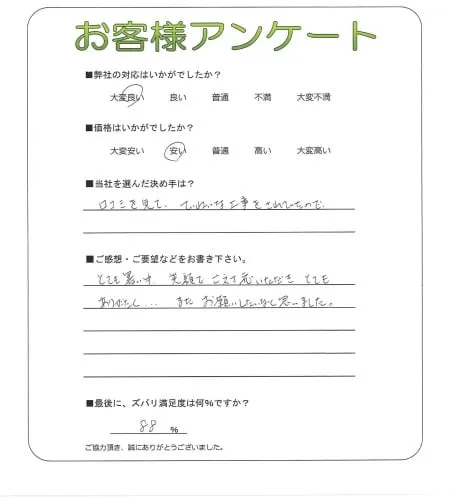 お客様アンケート
■弊社の対応はいかがでしたか？
大変良い 良い 普通 不満 大変不満
■価格はいかがでしたか？
大変安い 安い 普通 高い 大変高い
■当社を選んだ決め手は？
口コミを見て、ていねいな工事をされていたので
■ご感想・ご要望などをお書き下さい。
とても暑い中 笑顔で 応いただき とても
ありがたく... また お願いしたいなと思いました。
■最後に、ズバリ満足度は何%ですか？
88 %
ご協力頂き、誠にありがとうございました。